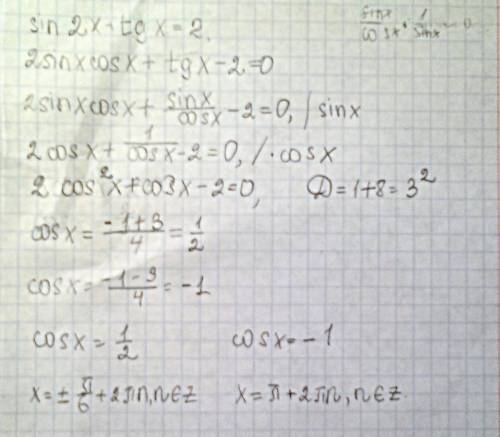 sin 2x + tg x = 2.
sinx/cosx · 1/sinx
2sinxcosx + tgx - 2 = 0
2sinxcosx + sinx/cosx - 2 = 0, / sinx
2cosx + 1/cosx - 2 = 0, / · cosx
2 cos²x + cosx - 2 = 0, D = 1 + 8 = 3²
cosx = (-1+3)/4 = 1/2
cosx = (-1-3)/4 = -1
cosx = 1/2 cosx = -1
x = ± π/6 + 2πn, n∈z x = π + 2πn, n∈z.